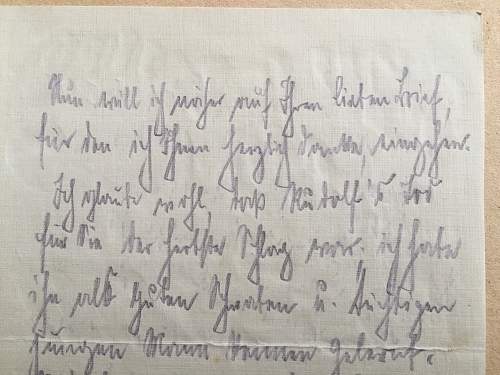 Nun will ich näher auf Ihren lieben Brief,
für den ich Ihnen herzlich danke, eingehen.
Ich glaube wohl, daß Rudolf's Tod
für Sie der herbste Schlag war, ich habe
ihn als guten Schwaben u. tüchtigen
jungen Mann kennen gelernt.